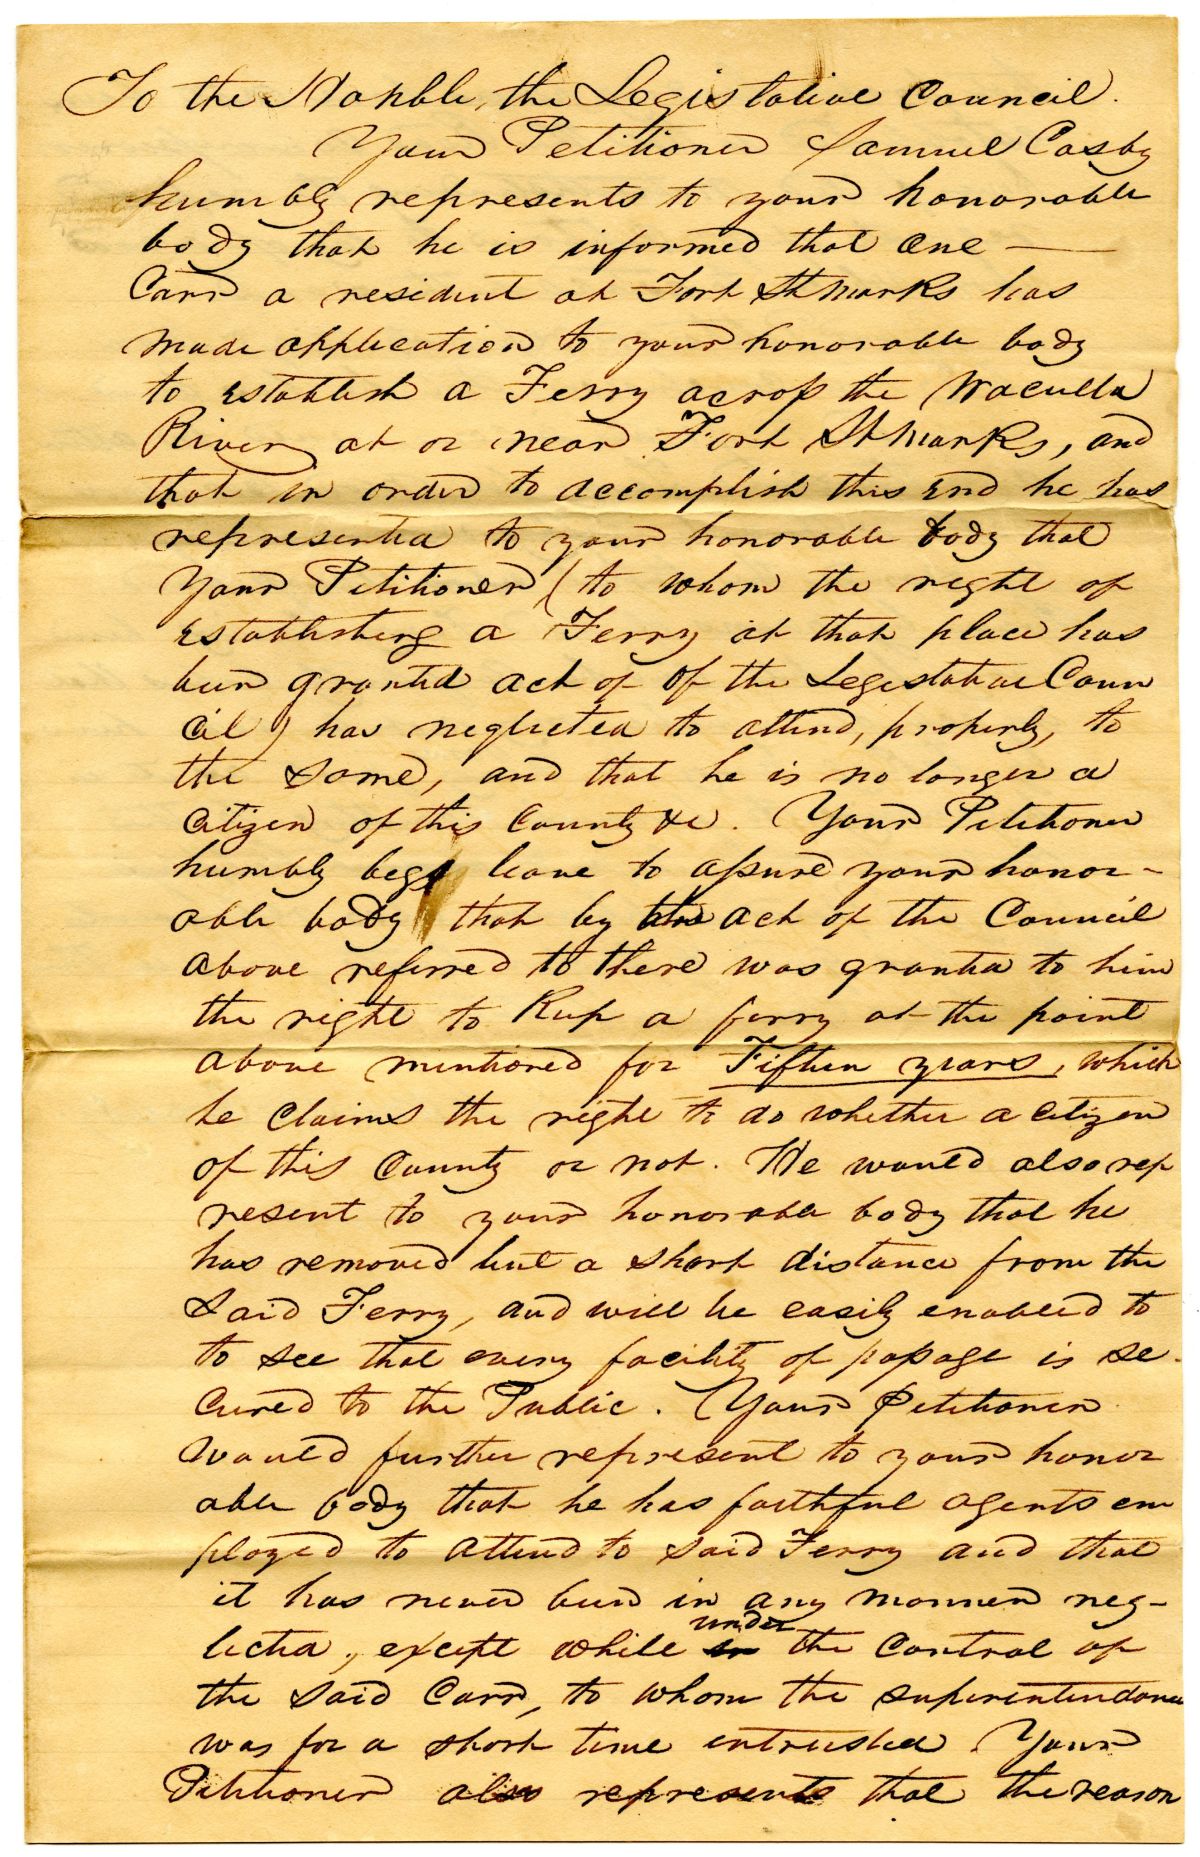 To the Honble, the Legislative Council.
Your Petitioner Samuel Cosby
humbly represents to your honorable
body that he is informed that one —
Carr a resident at Fort St Marks has
made application to your honorable body
to establish a Ferry across the Waculla
River at or near Fort St Marks, and
that in order to accomplish this end he has
represented to your honorable body that
your Petitioner (to whom the right of
establishing a Ferry at that place has
been granted act of of the Legislative Coun
cil) has neglected to attend, properly, to
the same, and that he is no longer a
citizen of this County &c. Your Petitioner
humbly begs leave to assure your honor-
able body that by the act of the Council
above referred to there was granted to him
the right to Keep a ferry at the point
above mentioned for Fifteen years, which
he claims the right to do whether a citizen
of this County or not. He would also rep
resent to your honorable body that he
has removed but a short distance from the
said Ferry, and will be easily enabled to
to see that every facility of passage is se-
cured to the Public. Your Petitioner
would further represent to your honor
able body that he has faithful agents em
ployed to attend to said Ferry and that
it has never been in any manner neg-
lected, except while under the control of
the said Carr, to whom the superintendance
was for a short time entrusted. Your
Petitioner also represents that the reason